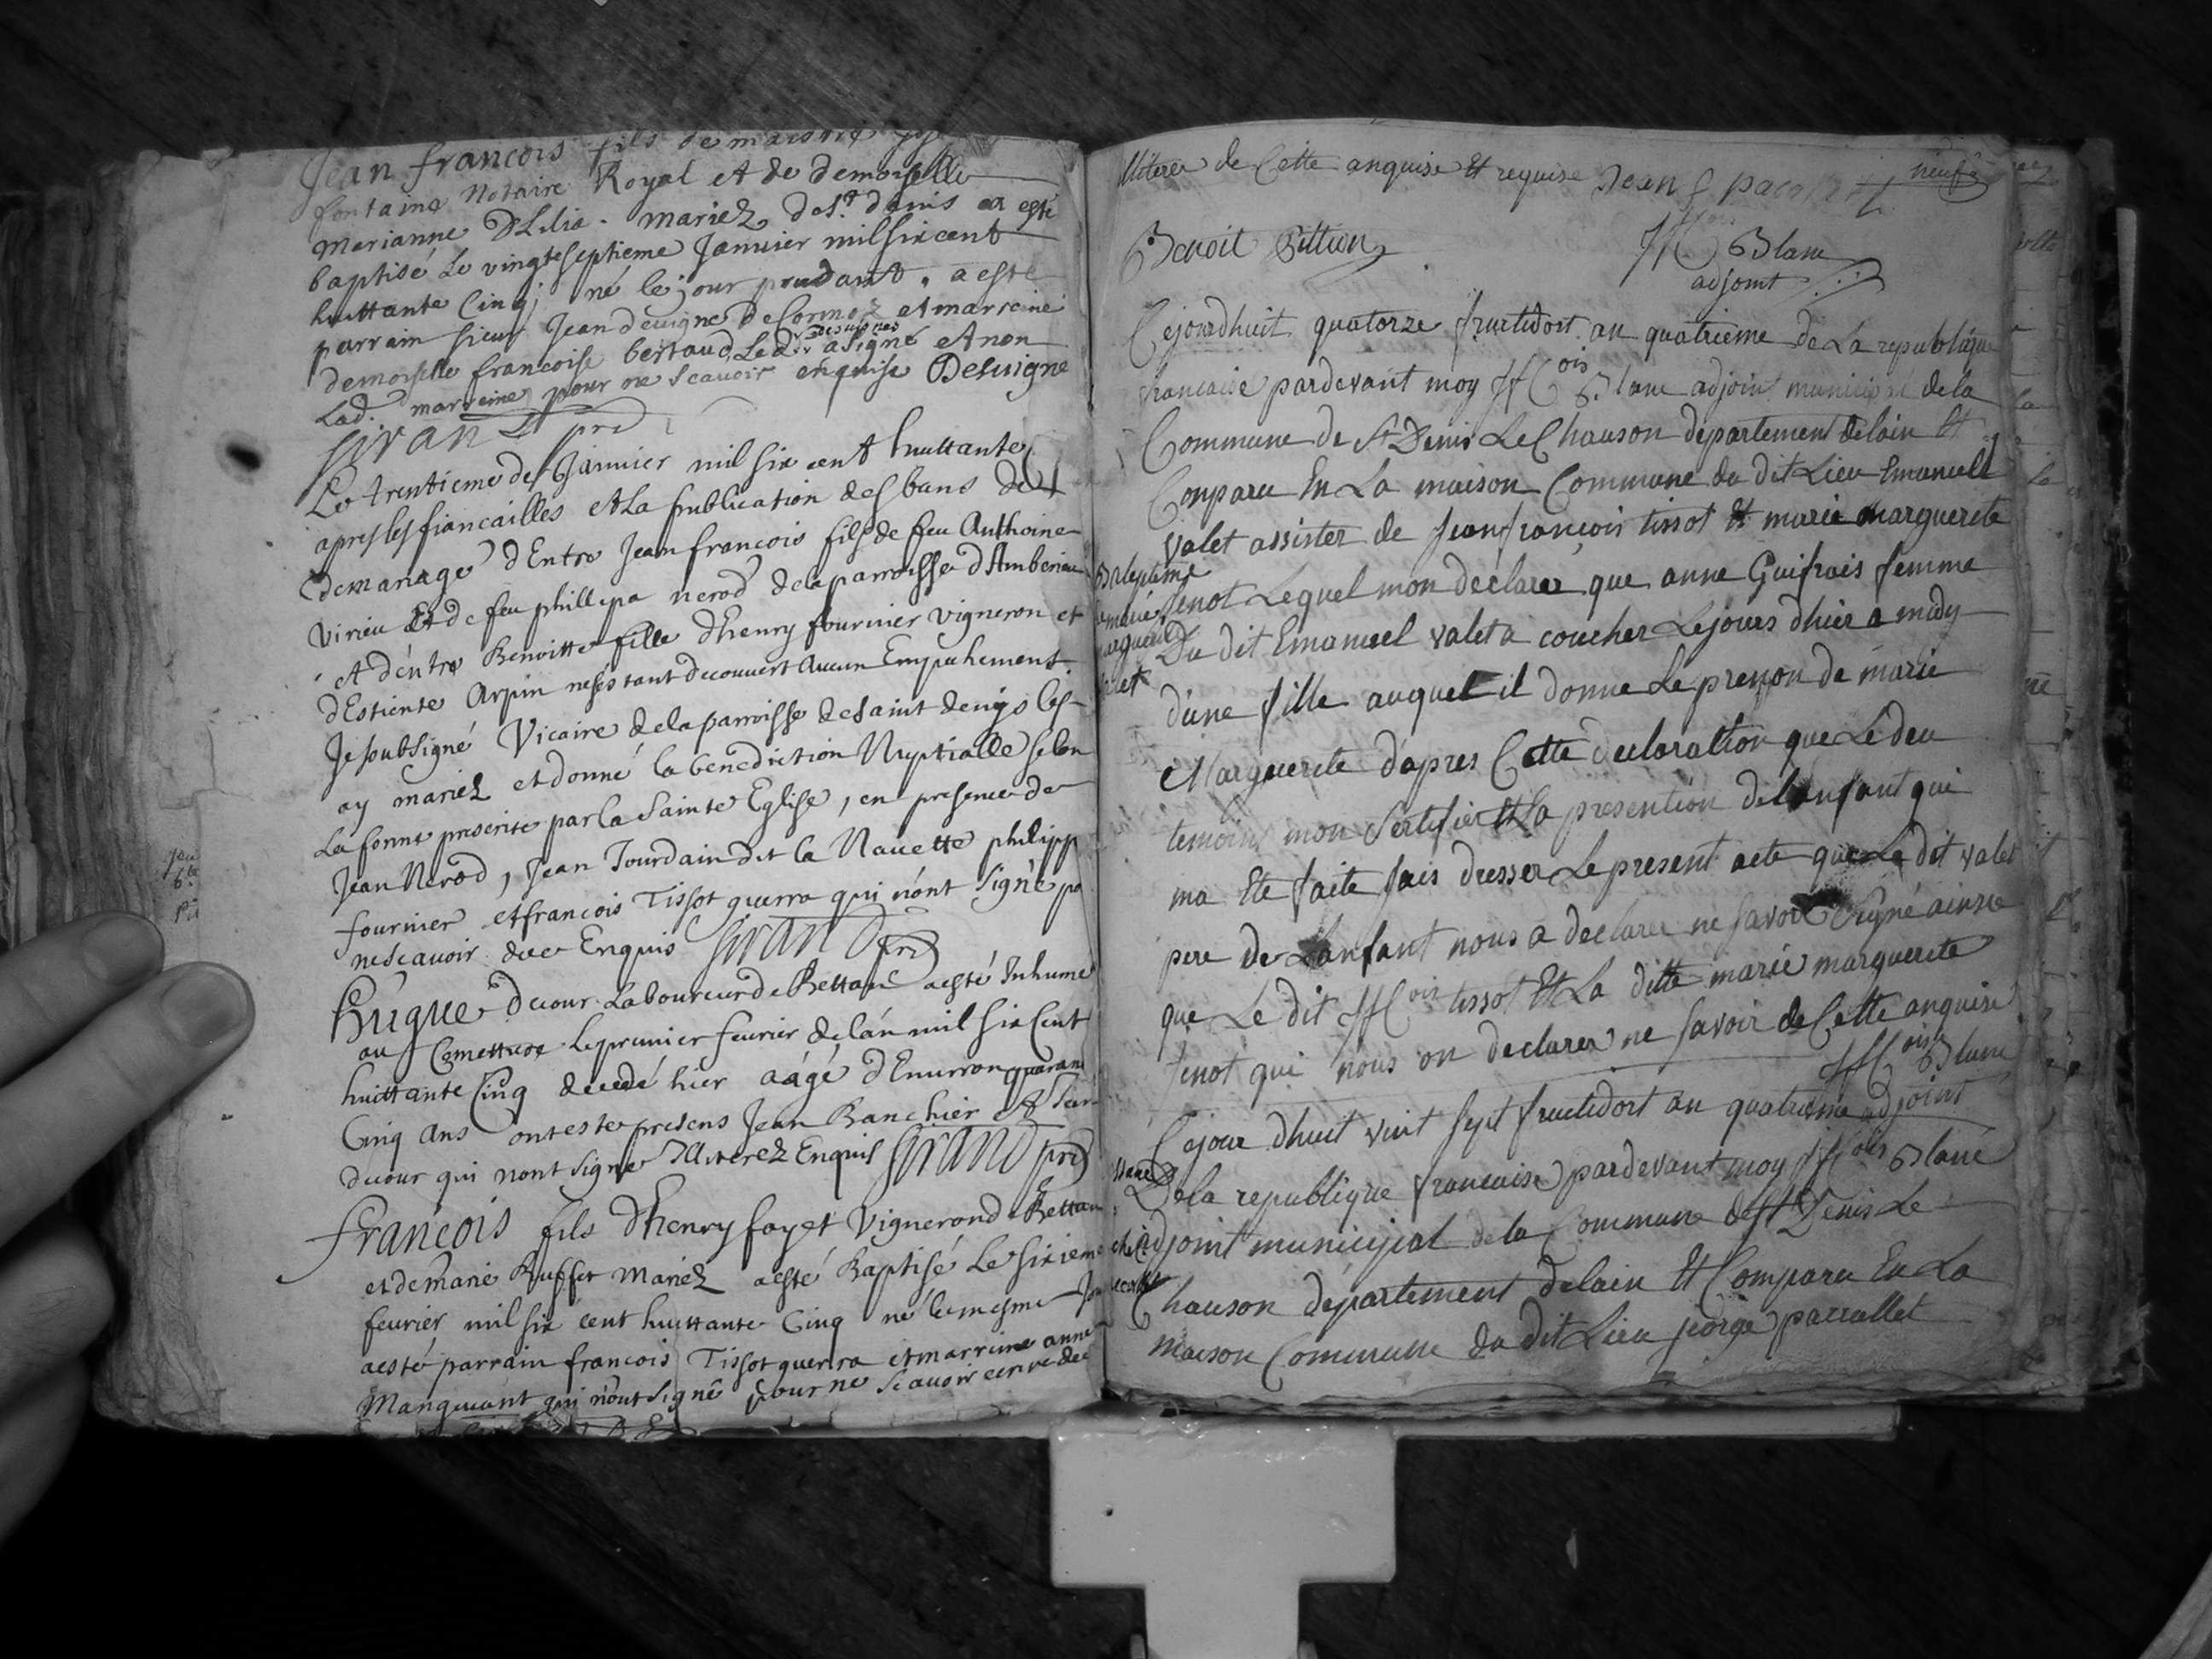 Jean francois fils de maistre
fontaine notaire Royal et de demoiselle
marianne Dlilia mariez de st denis a esté
baptisé le vingtseptieme Januier mil six cent
huittante Cinq né le jour a esté
parrain sieur Jean deuigne de et marreine
demoiselle francoise bertaud Led. a signé et non
Lad. marreine pour ne scauoir enquise Deluigne
Le trentieme de Januier mil six cent huittante
apres les fiancailles et la publication des bans de
de mariage d'Entre Jean francois fils de feu Anthoine
virieu et de feu phillipa nerod de la parroisse d'Amberieu
et d'entre Benoitte fille d'henry fournier vigneron et
d'Estiente Arpin ne s'estant decouuert Aucun Empechement
Je soubsigné Vicaire de la parroisse de saint denys les
ay mariez et donné la benediction Nuptialle selon
La forme prescrite par la Sainte Eglise, en presence de
Jean Nerod, Jean Jourdain dit la Nauette philipp
fournier et francois Tissot guerra qui n'ont signé po
ne scauoir de ce Enquis
Hugue Ducour Laboureur de Bettan a esté Inhumé
au Cemettiere le premier feurier de l'an mil six Cent
huittante Cinq decedé hier aâgé d'Enuiron quaran
Cinq Ans ont este presens Jean Banchier et
ducour qui n'ont signé Enquis
francois fils d'henry fayet Vigneron de Bettan
et de marie Buffet Mariez a esté Baptisé le sixieme
feurier mil six cent huittante Cinq né le mesme Jou
a esté parrain francois Tissot guerra et marreine anne
Manquant qui n'ont signé pour ne scauoir ecrire de ce
de Cette anquise Et requise Jean
Benoit Pittion
Blanc
adjoint
Cejourdhuit quatorze fructidort an quatrieme de La republique
francaise pardevant moy ois Blanc adjoint municipal de la
Commune de St Denis Le Chauson département delain Et
Conparu En La maison Commune du dit Lieu Emanuell
valet assister de Jeanfrançois tissot Et marie marguerite
tenot Lequel mon declarer que anne Guifrais femme
Du dit Emanuel valet a coucher Lejours dhier a midy
dune fille auquel il donne Le prenon de marie
Marguerite dapres Cette declaration que Le deu
temoins mon sertifier Et la presention de lanfant qui
ma Ete faite fais dresser Le present acte que Le dit valet
pere de Lanfant nous a declarer ne savoir signé ainsie
que Le dit ois tissot Et La ditte marie marguerite
tenot qui nous on declarer ne savoir de Cette anquise
ois Blanc
adjoint
Cejour dhuit vint sept fructidort an quatrieme
Dela republique francaise pardevant moy ois Blanc
adjoint municipal de la Commune de St Denis Le
Chauson département delain Et Comparu En La
maison Commune du dit Lieu jeorge parrallet